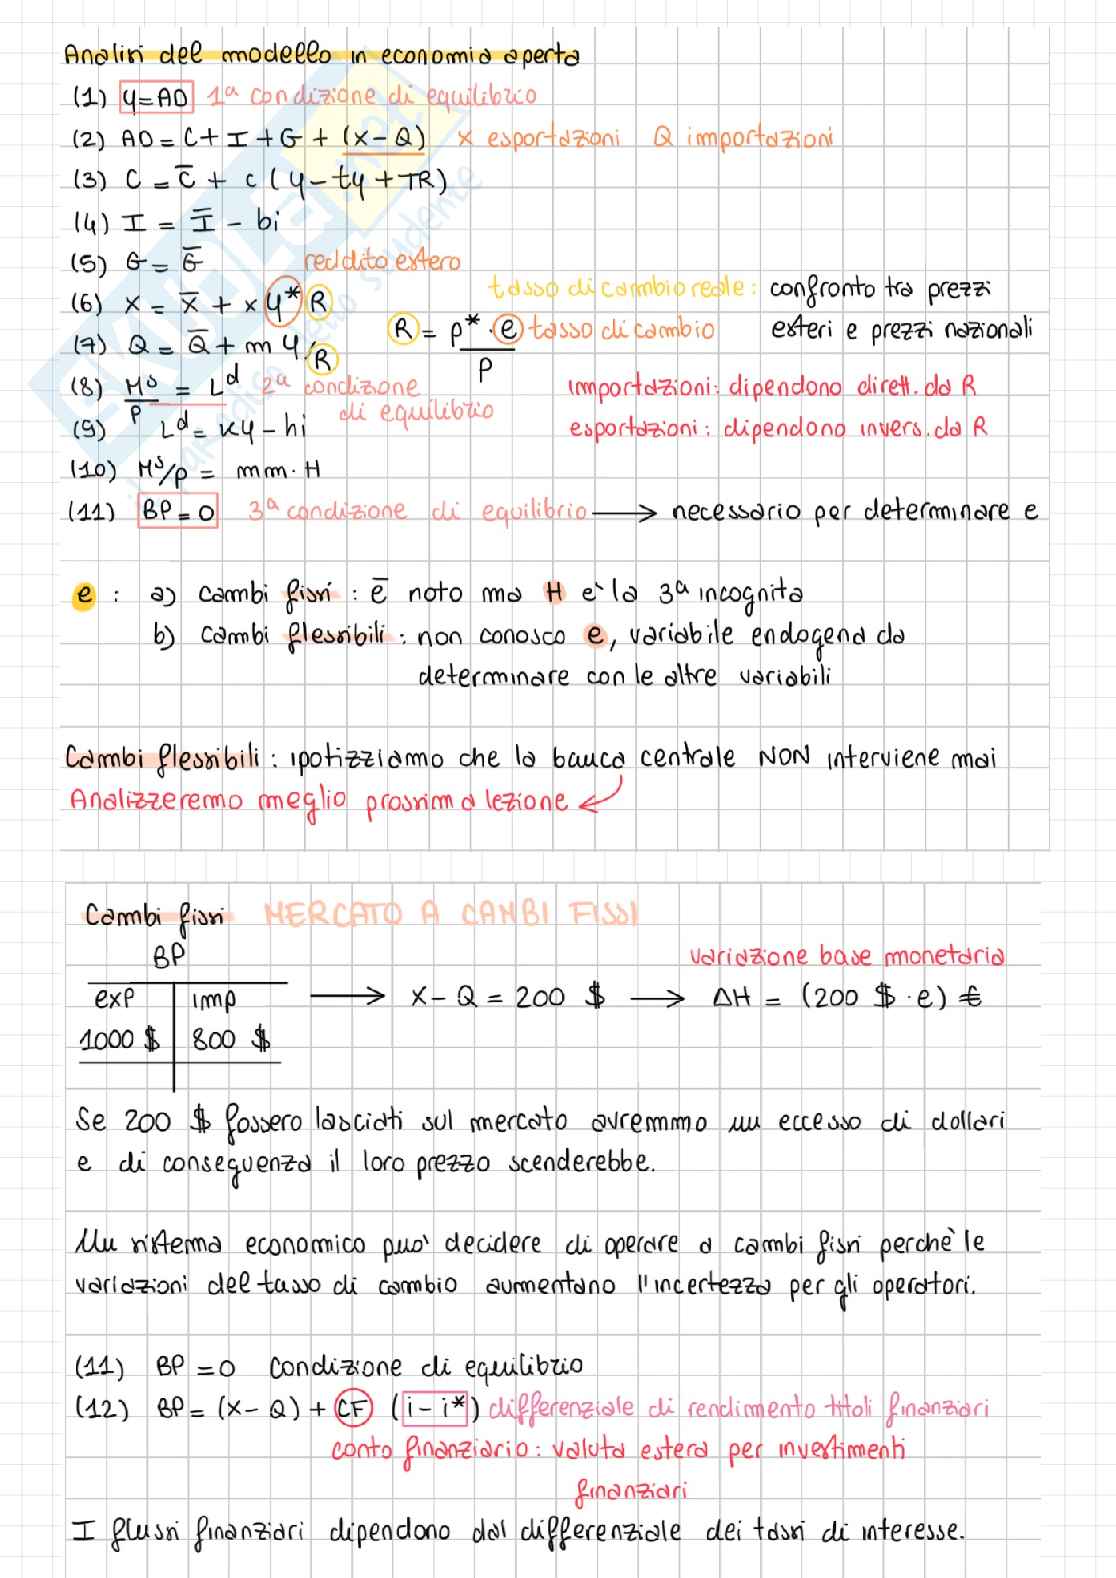 Analisi del modello in economia aperta
(1) Y=AD 1ª condizione di equilibrio
(2) AD = C + I + G + (X-Q) X esportazioni Q importazioni
(3) C = C̅ + c (Y - tY + TR)
(4) I = I̅ - bi
(5) G = G̅ reddito estero
tasso di cambio reale: confronto tra prezzi
(6) X = X̅ + x Y* R
R = P* · e / P tasso di cambio esteri e prezzi nazionali
(7) Q = Q̅ + m Y/R
(8) Mˢ/P = Lᵈ 2ª condizione importazioni: dipendono dirett. da R
di equilibrio
(9) Lᵈ = KY - hi esportazioni: dipendono invers. da R
(10) Mˢ/P = mm · H
(11) BP = 0 3ª condizione di equilibrio → necessario per determinare e
e : a) cambi fissi : e̅ noto ma H è la 3ª incognita
b) cambi flessibili : non conosco e, variabile endogena da
determinare con le altre variabili
Cambi flessibili : ipotizziamo che la banca centrale NON interviene mai
Analizzeremo meglio prossima lezione ↙
Cambi fissi MERCATO A CAMBI FISSI
BP variazione base monetaria
exp imp → X - Q = 200 $ → ΔH = (200 $ · e) €
1000 $ 800 $
Se 200 $ fossero lasciati sul mercato avremmo un eccesso di dollari
e di conseguenza il loro prezzo scenderebbe.
Un sistema economico può decidere di operare a cambi fissi perchè le
variazioni del tasso di cambio aumentano l'incertezza per gli operatori.
(11) BP = 0 Condizione di equilibrio
(12) BP = (X - Q) + CF (i - i*) differenziale di rendimento titoli finanziari
conto finanziario : valuta estera per investimenti
finanziari
I flussi finanziari dipendono dal differenziale dei tassi di interesse.